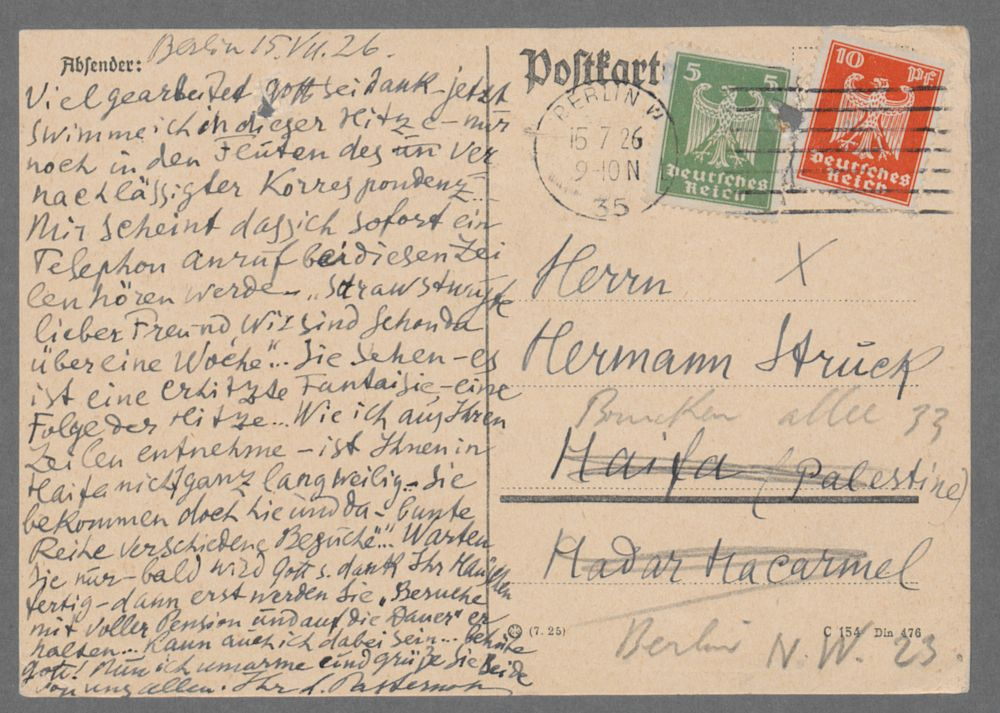 Absender:
Berlin 15.VII.26.
Viel gearbeitet Gott sei dank – jetzt
swimme ich in dieser Hitze – nur
noch in den Fluten des un ver
nachlässigter Korrespondenz.
Mir scheint dass ich sofort ein
Telephon anruf bei diesen Zei
len hören werde –
lieber Freund wir sind schon da
über eine Woche"... Sie sehen – es
ist eine erhitzte Fantaisie – eine
Folge der Hitze... Wie ich aus Ihren
Zeilen entnehme – ist Ihnen in
Haifa nicht ganz langweilig – Sie
bekommen doch hie und da – bunte
Reihe verschiedene Besuche"... Warten
Sie nur – bald wird Gott s. dank Ihr Häuschen
fertig – dann erst werden Sie „Besuche
mit voller Pension und auf die Dauer" er
halten... Kann auch ich dabei sein... behüte
Gott! Nun ich umarme und grüße Sie beide
von uns allen. Ihr L. Pasternak
Postkarte
BERLIN W
15 7 26
9-10 N
35
5 5
Deutsches
Reich
10 Pf
Deutsches
Reich
Herrn X
Hermann Struck
Brucken allee 33
Haifa (Palestine)
Hadar Hacarmel
Berlin N.W. 23.
(7. 25)
C 154 Din 476